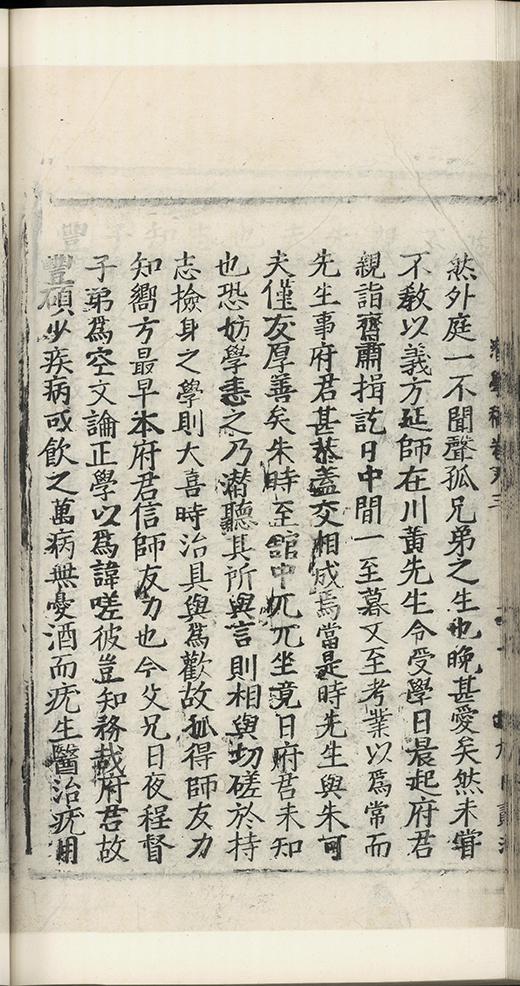 然外庭一不聞聲孤兄弟之生也晚甚愛矣然未嘗
不教以義方延師在川黃先生令受學日晨起府君
親詣齋肅揖訖日中間一至暮又至考業以為常而
先生事府君甚恭蓋交相成焉當是時先生與朱可
夫僅友厚善矣朱時至館中兀兀坐竟日府君未知
也恐妨學恚之乃潜聽其所與言則相與切磋於持
志撿身之學則大喜時治具與為歡故孤得師友力
知嚮方最早本府君信師友力也今父兄日夜程督
子弟為空文論正學以為諱嗟彼豈知務哉府君故
豐碩少疾病或飲之萬病無憂酒而疣生醫治疣用